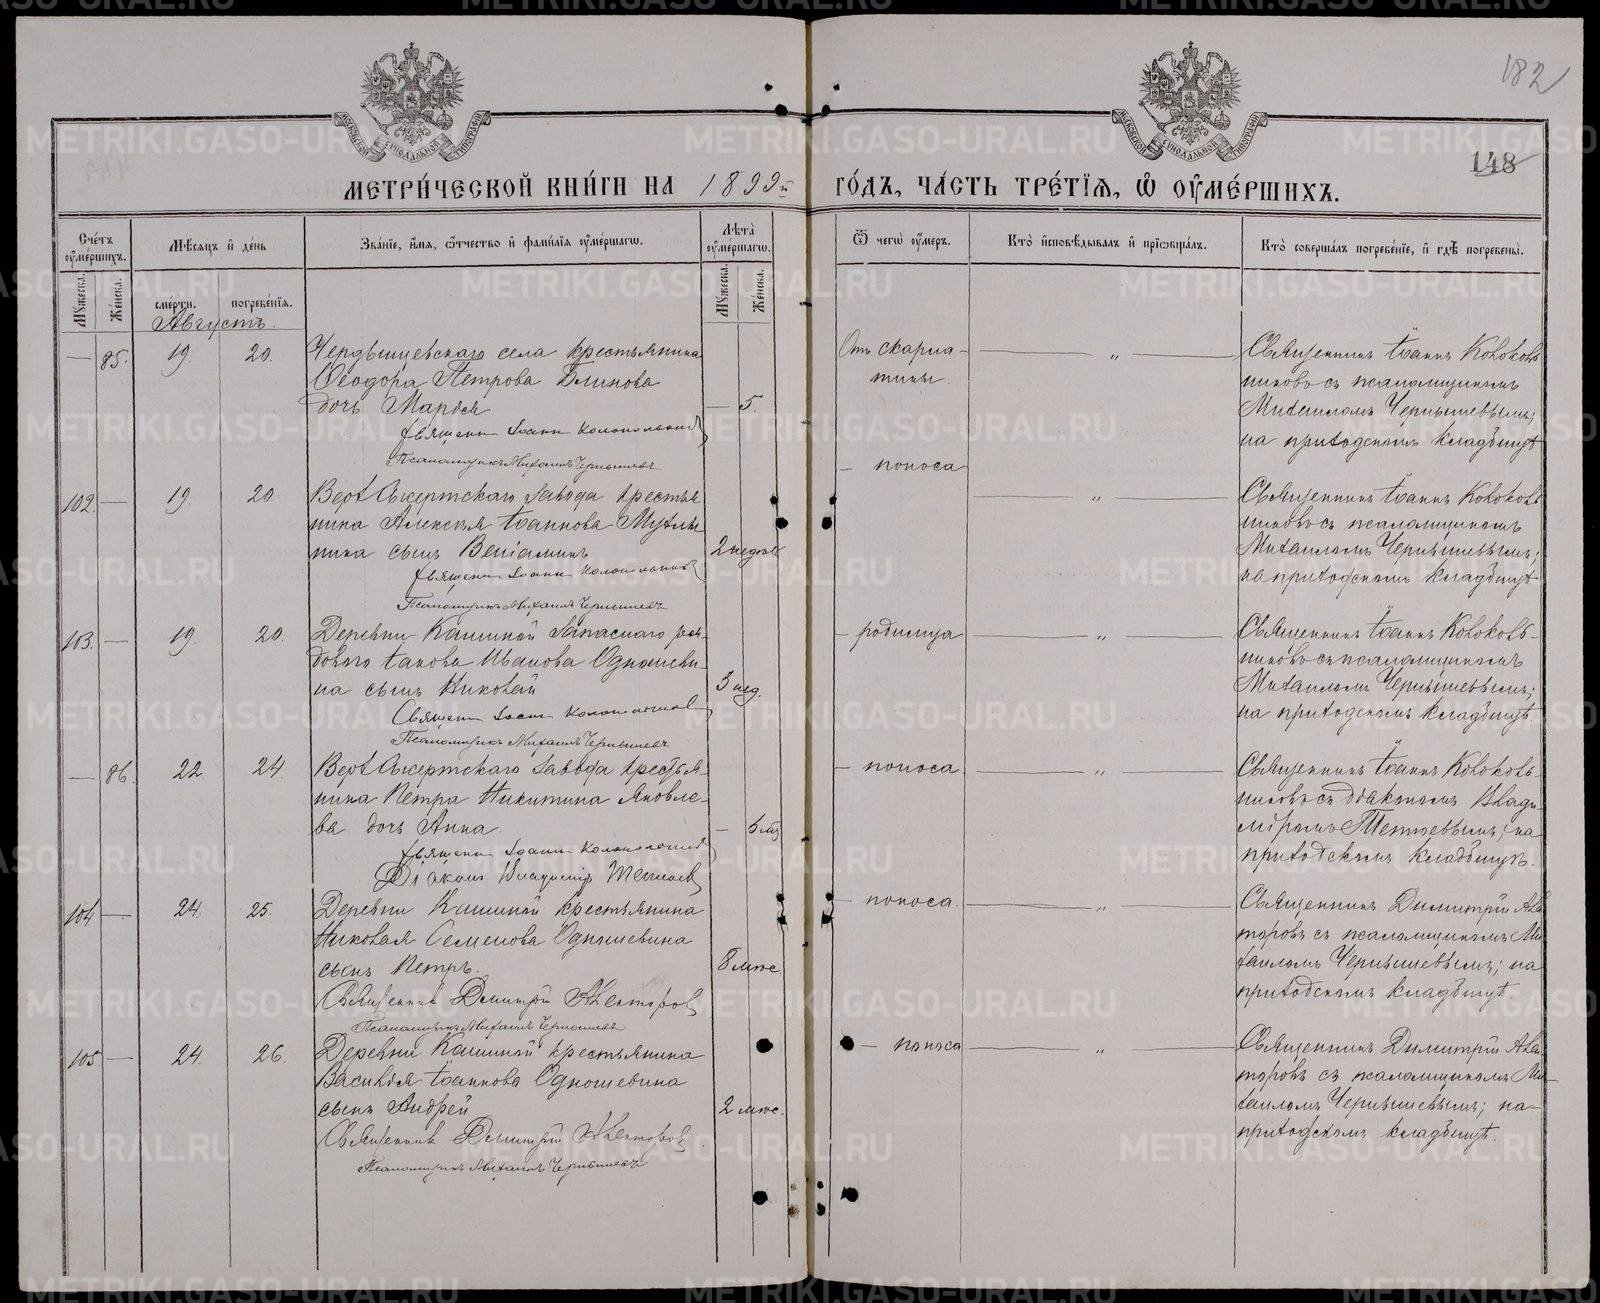 182
148
МЕТРИ́ЧЕСКОЙ КНИ́ГИ НА 1899й ГО́ДЪ, ЧА́СТЬ ТРЕ́ТІѦ, Ѡ҆ ОУ҆МЕ́РШИХЪ.
Сче́тъ оу҆ме́ршихъ.
Мѣ́сяцъ и҆ де́нь
Зва́ніе, и҆́мѧ, ѻ҆́тчество и҆ фами́лїѧ оу҆ме́ршагѡ.
Лѣ́та оу҆ме́ршагѡ.
Ѿ чегѡ̀ оу҆́меръ.
Кто̀ и҆сповѣ́дывалъ и҆ прїѡбща́лъ.
Кто̀ соверша́лъ погребе́ніе, и҆ гдѣ̀ погребены̀.
Мꙋ́жеска.
Же́нска.
сме́рти.
погребе́нїѧ.
Мꙋ́жеска.
Же́нска.
Августъ.
— 85. 19. 20. Чердынцевскаго села крестьянина
Ѳеодора Петрова Блинова
дочь Марѳя — 5.
Священн Іоанн Колокольник
Псаломщикъ Михаилъ Чернышевъ
Отъ скарла-
тины.
— „ —
Священникъ Іоаннъ Колоколь
никовъ съ псаломщикомъ
Михаиломъ Чернышевымъ;
на приходскомъ кладбищѣ
102. — 19. 20 Верх Сысертскаго завода крестья
нина Алексѣя Іоаннова Мутны
нина сынъ Веніаминъ 2 недѣль
Священн Іоанн Колокольник
Псаломщикъ Михаилъ Чернышевъ
— поноса
„ —
Священникъ Іоаннъ Колоколь
никовъ съ псаломщикомъ
Михаиломъ Чернышевымъ;
на приходскомъ кладбищѣ
103. — 19. 20. Деревни Кашиной запаснаго ря-
доваго Іакова Иванова Одношеви-
на сынъ Николай 3 нед.
Священн Іоанн Колокольник
Псаломщикъ Михаилъ Чернышевъ
— родимца
— „ —
Священникъ Іоаннъ Колоколь-
никовъ съ псаломщикомъ
Михаиломъ Чернышевымъ;
на приходскомъ кладбищѣ
— 86. 22 24. Верх Сысертскаго завода крестья-
нина Петра Никитина Яковле-
ва дочь Анна. —
Священн Іоанн Колокольник
Діаконъ Владиміръ Тетневъ
— поноса
— „ —
Священникъ Іоаннъ Колоколь-
никовъ съ діакономъ Влади-
міромъ Тетневымъ; на
приходскомъ кладбищѣ.
104 — 24. 25. Деревни Кашиной крестьянина
Николая Семенова Одношевина
сынъ Петръ. 8 мѣс
Священникъ Димитрій Авенторовъ
Псаломщикъ Михаилъ Чернышевъ
— поноса.
— „ —
Священникъ Димитрій Авен
торовъ съ псаломщикомъ Ми
хаиломъ Чернышевымъ; на
приходскомъ кладбищѣ
105. — 24. 26. Деревни Кашиной крестьянина
Василія Іоаннова Одношевина
сынъ Андрей 2 мѣс.
Священникъ Димитрій Авенторовъ
Псаломщикъ Михаилъ Чернышевъ
— поноса
— „ —
Священникъ Димитрій Авен
торовъ съ псаломщикомъ Ми-
хаиломъ Чернышевымъ; на-
приходскомъ кладбищѣ.